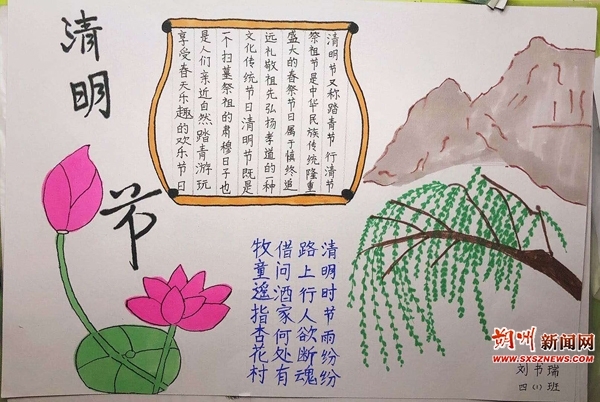 清明
节
清明节又称踏青节 行清节
祭祖节是中华民族传统隆重
盛大的春祭节日属于慎终追
远礼敬祖先弘扬孝道的一种
文化传统节日清明节既是
一个扫墓祭祖的肃穆日子也
是人们亲近自然踏青游玩
享受春天乐趣的欢乐节日
清明时节雨纷纷
路上行人欲断魂
借问酒家何处有
牧童遥指杏花村
朔州新闻网
WWW.SXSZNEWS.COM
刘书瑞
四(1)班